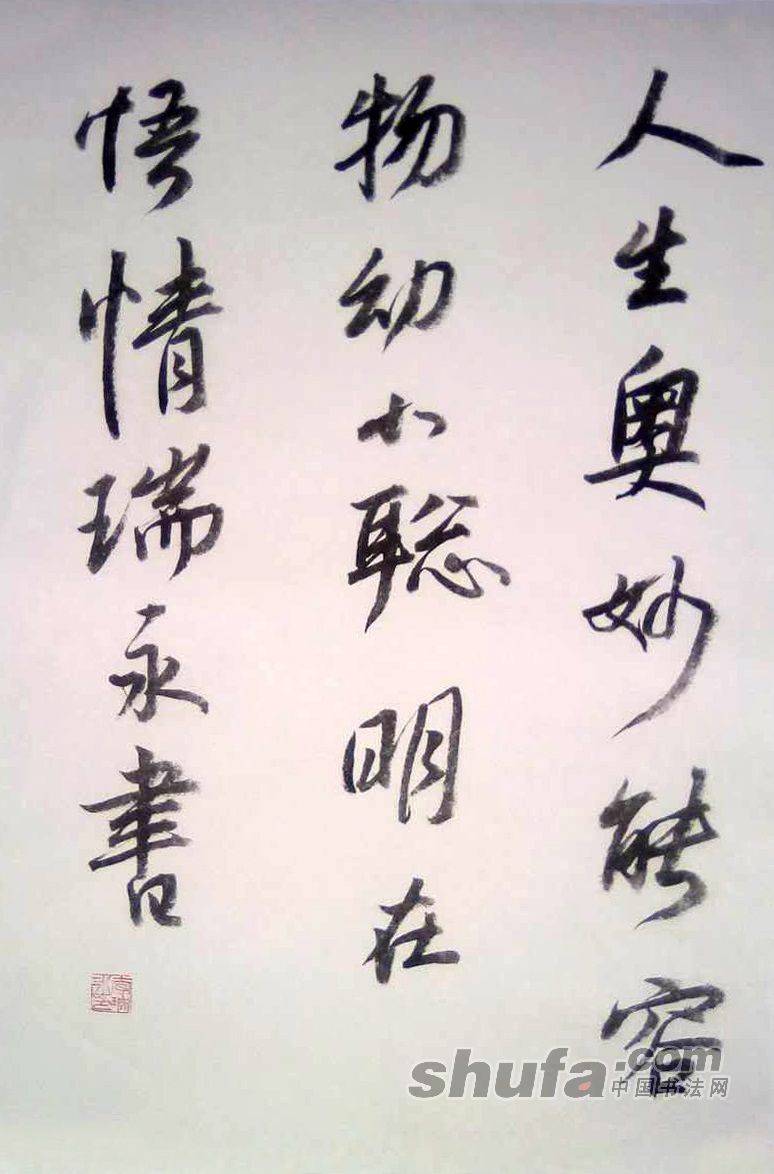 人生奥妙能容
物幼小聪明在
悟情瑞永書
shufa.com
中国书法网